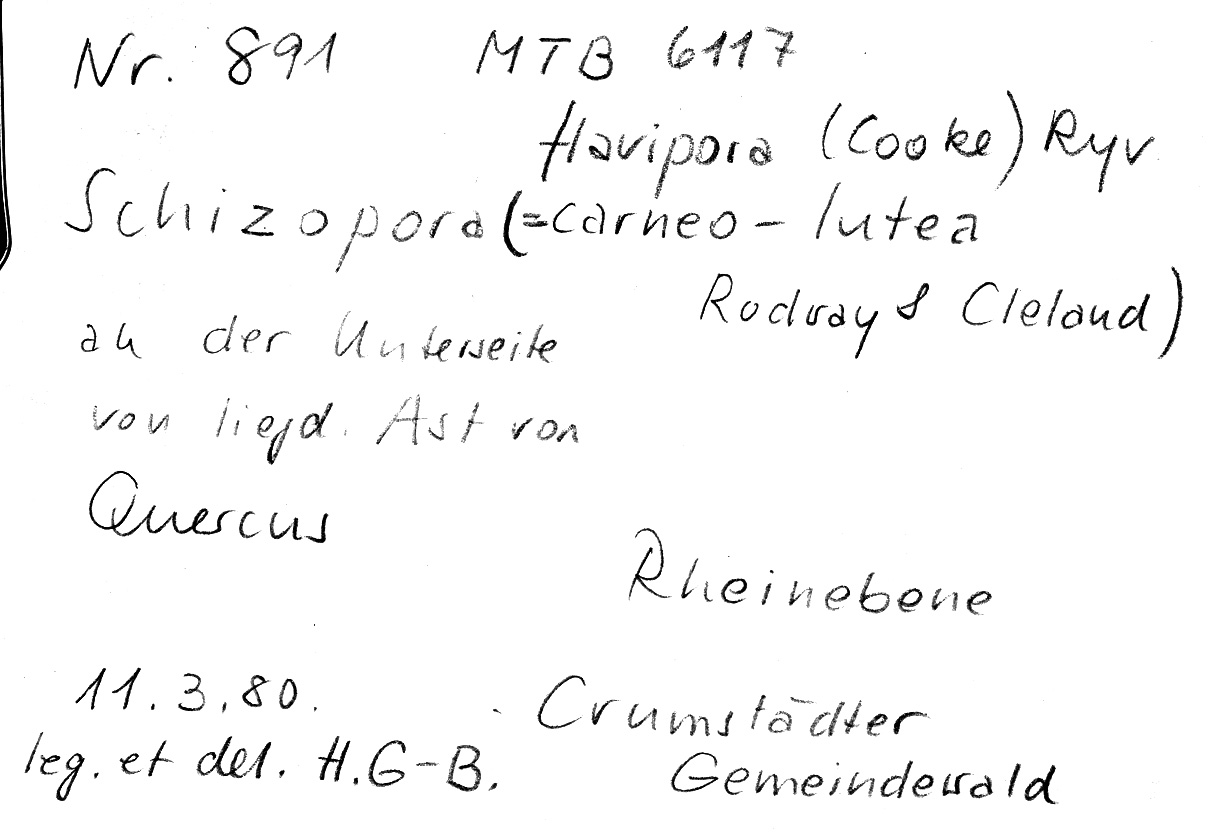 Nr. 891 MTB 6117
flavipora (Cooke) Ryv
Schizopora (=carneo-lutea
Rodway & Cleland)
an der Unterseite
von liegd. Ast von
Quercus
Rheinebene
11.3.80. Crumstädter
leg. et det. H.G-B. Gemeindewald